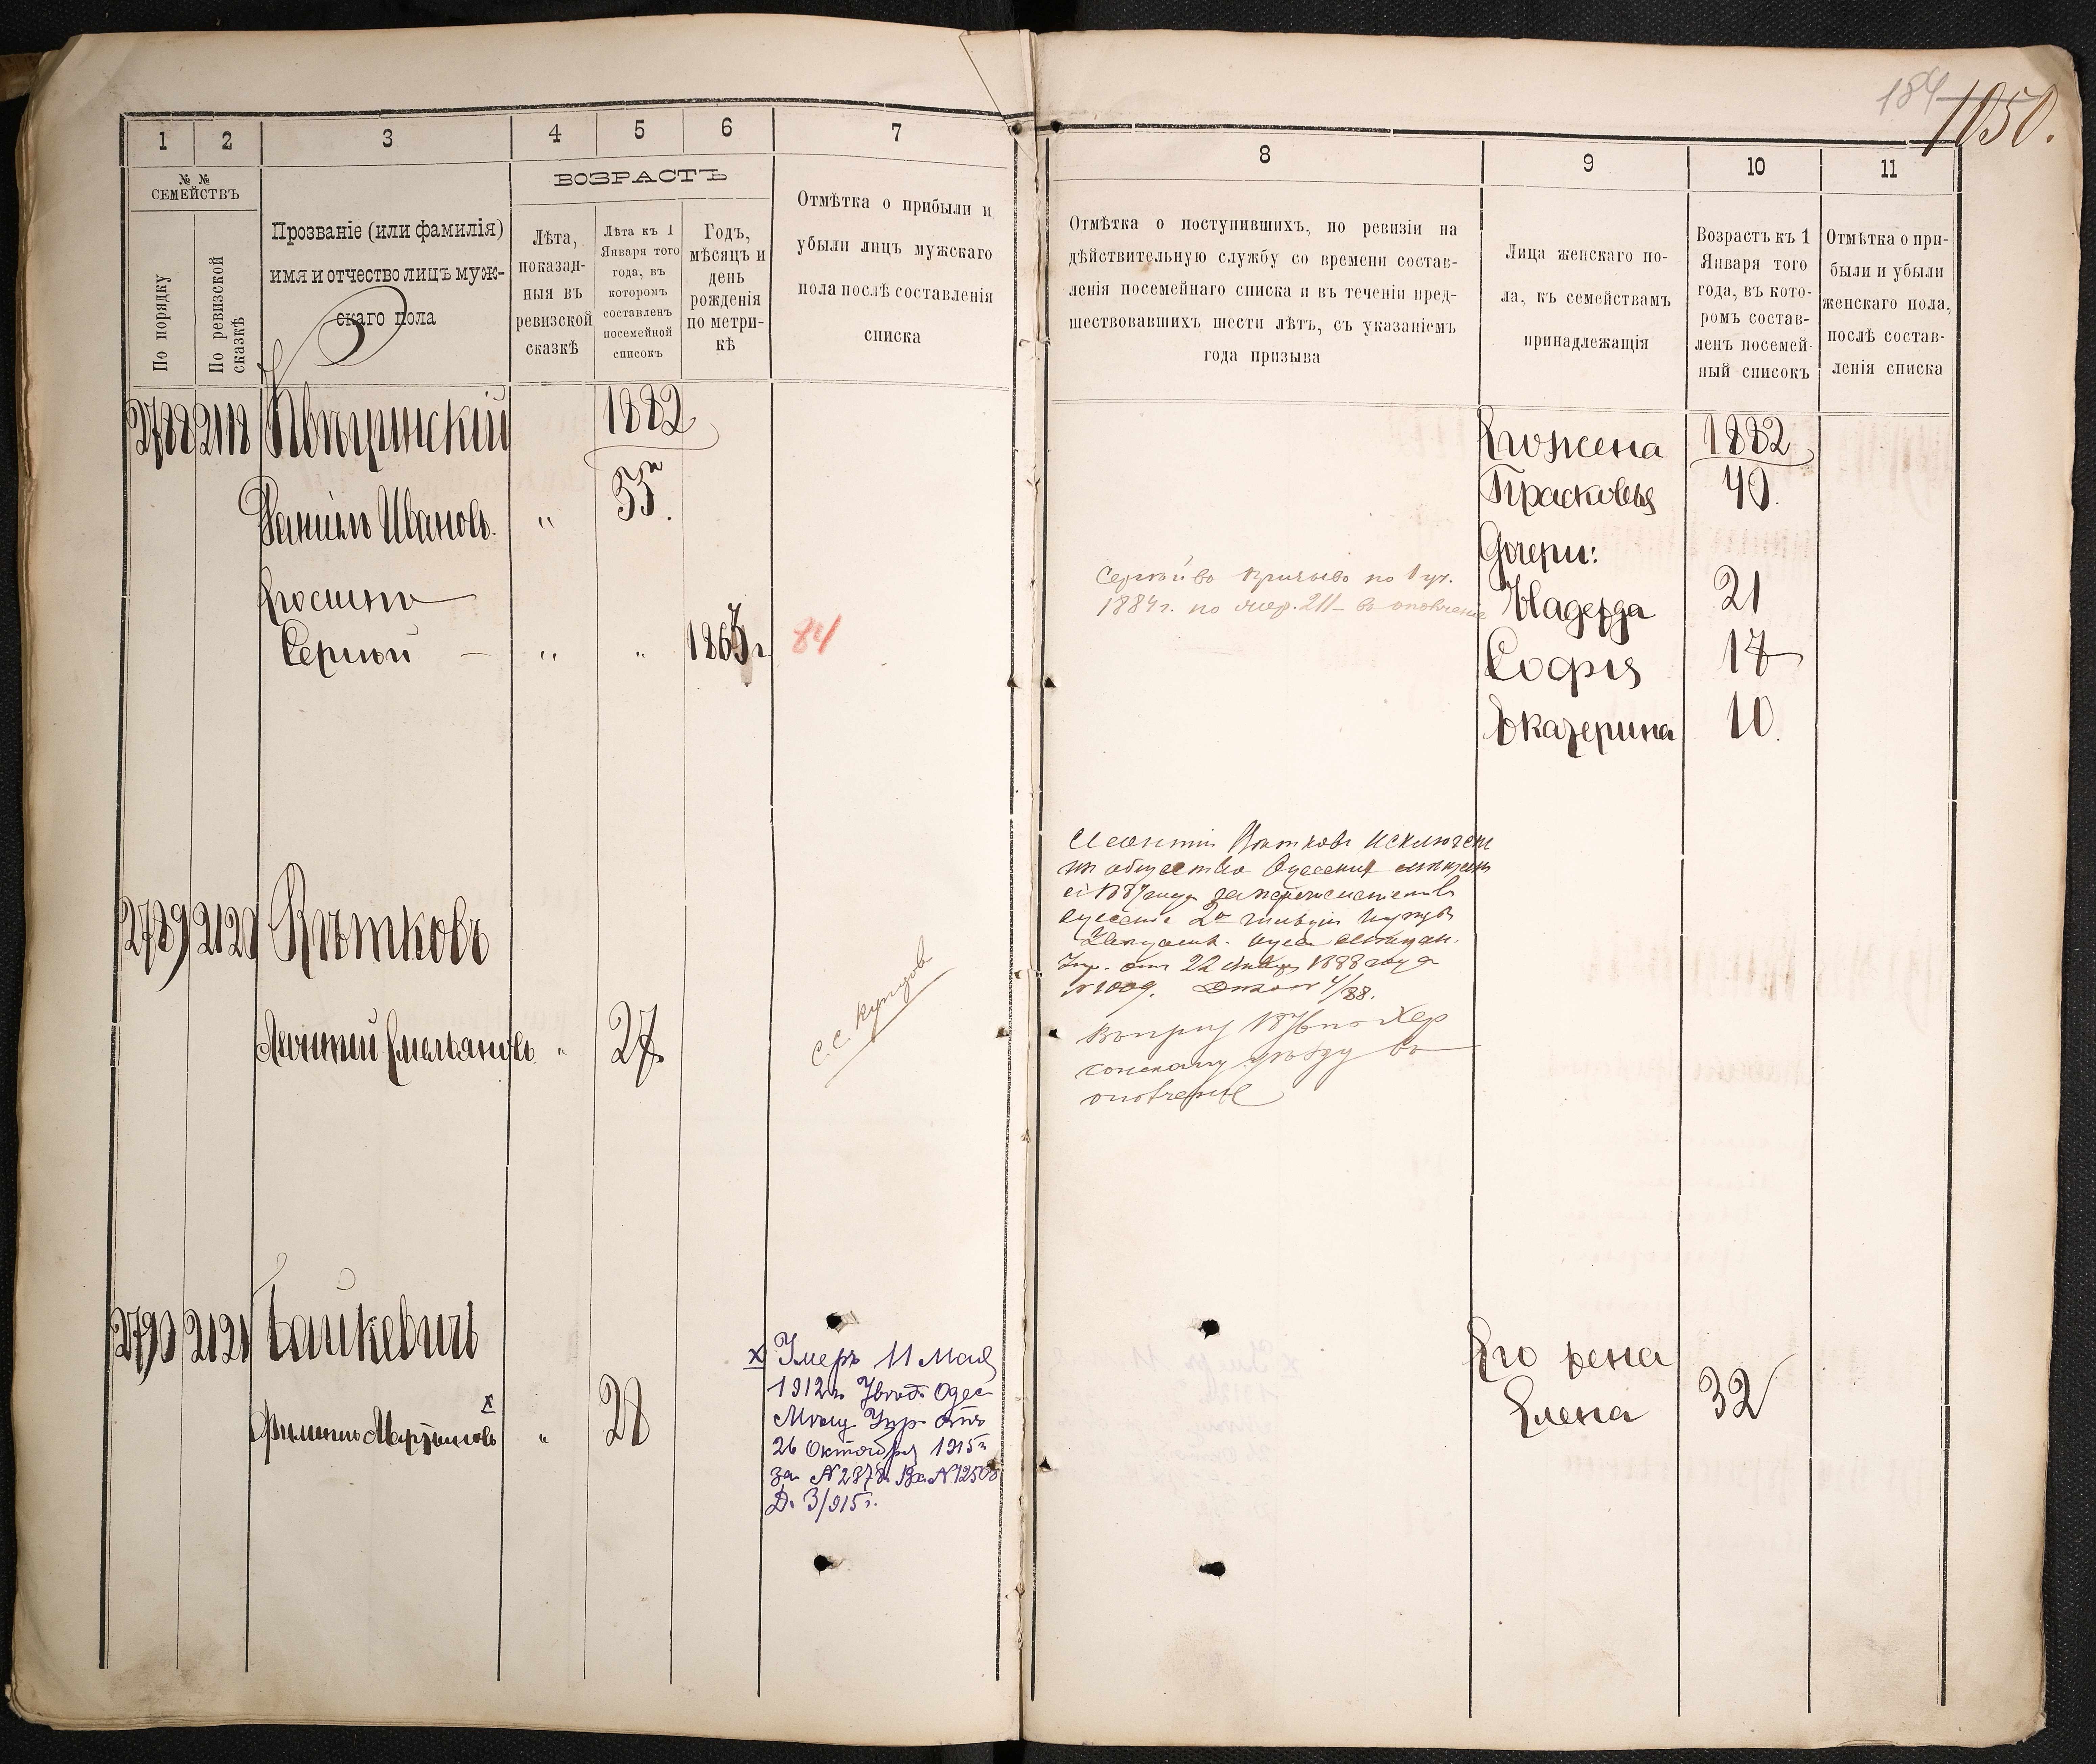 184 1050.
1 2 3 4 5 6 7
№ №
СЕМЕЙСТВЪ
По порядку
По ревизской сказкѣ
Прозваніе (или фамилія)
имя и отчество лицъ муж-
скаго пола
ВОЗРАСТЪ
Лѣта,
показан-
ныя въ
ревизской
сказкѣ
Лѣта къ 1
Января того
года, въ
которомъ
составленъ
посемейной
списокъ
Годъ,
мѣсяцъ и
день
рожденія
по метри-
кѣ
Отмѣтка о прибыли и
убыли лицъ мужскаго
пола послѣ составленія
списка
8 9 10 11
Отмѣтка о поступившихъ, по ревизіи на
дѣйствительную службу со времени состав-
ленія посемейнаго списка и въ теченіи пред-
шествовавшихъ шести лѣтъ, съ указаніемъ
года призыва
Лица женскаго по-
ла, къ семействамъ
принадлежащія
Возрастъ къ 1
Января того
года, въ кото-
ромъ состав-
ленъ посемей-
ный списокъ
Отмѣтка о при-
были и убыли
женскаго пола,
послѣ состав-
ленія списка
2788 1882
Даніилъ Ивановъ. " 55
Его сынъ
Сергѣй " " 1863 г. 84
Сергѣй въ призывъ по 1 уч.
1884 г. по жер. 211 въ ополченіе
Его жена 1882
Прасковья 40.
Дочери:
Надежда 21
Софія 17
Екатерина 10.
2789 2120 Вѣтковъ
Леонтій Емельяновъ " 27
С. С. Купцовъ
Леонтій Вѣтковъ исключенъ
изъ общества Одесскихъ мѣщанъ
съ 1887 года
22 1888 года
№ 1009. 4/88.
по Хер
сонскому уѣзду въ
ополченіе
2790 2121 Байкевичъ
Мартиновъ x " 28
x Умеръ 11 Мая
1912 г. Увѣд. Одес
Мѣщ Упр отъ
26 Октября 1915 г.
за № 2878 Вх № 12508
Д. 3/915 г.
Его жена
Елена 32